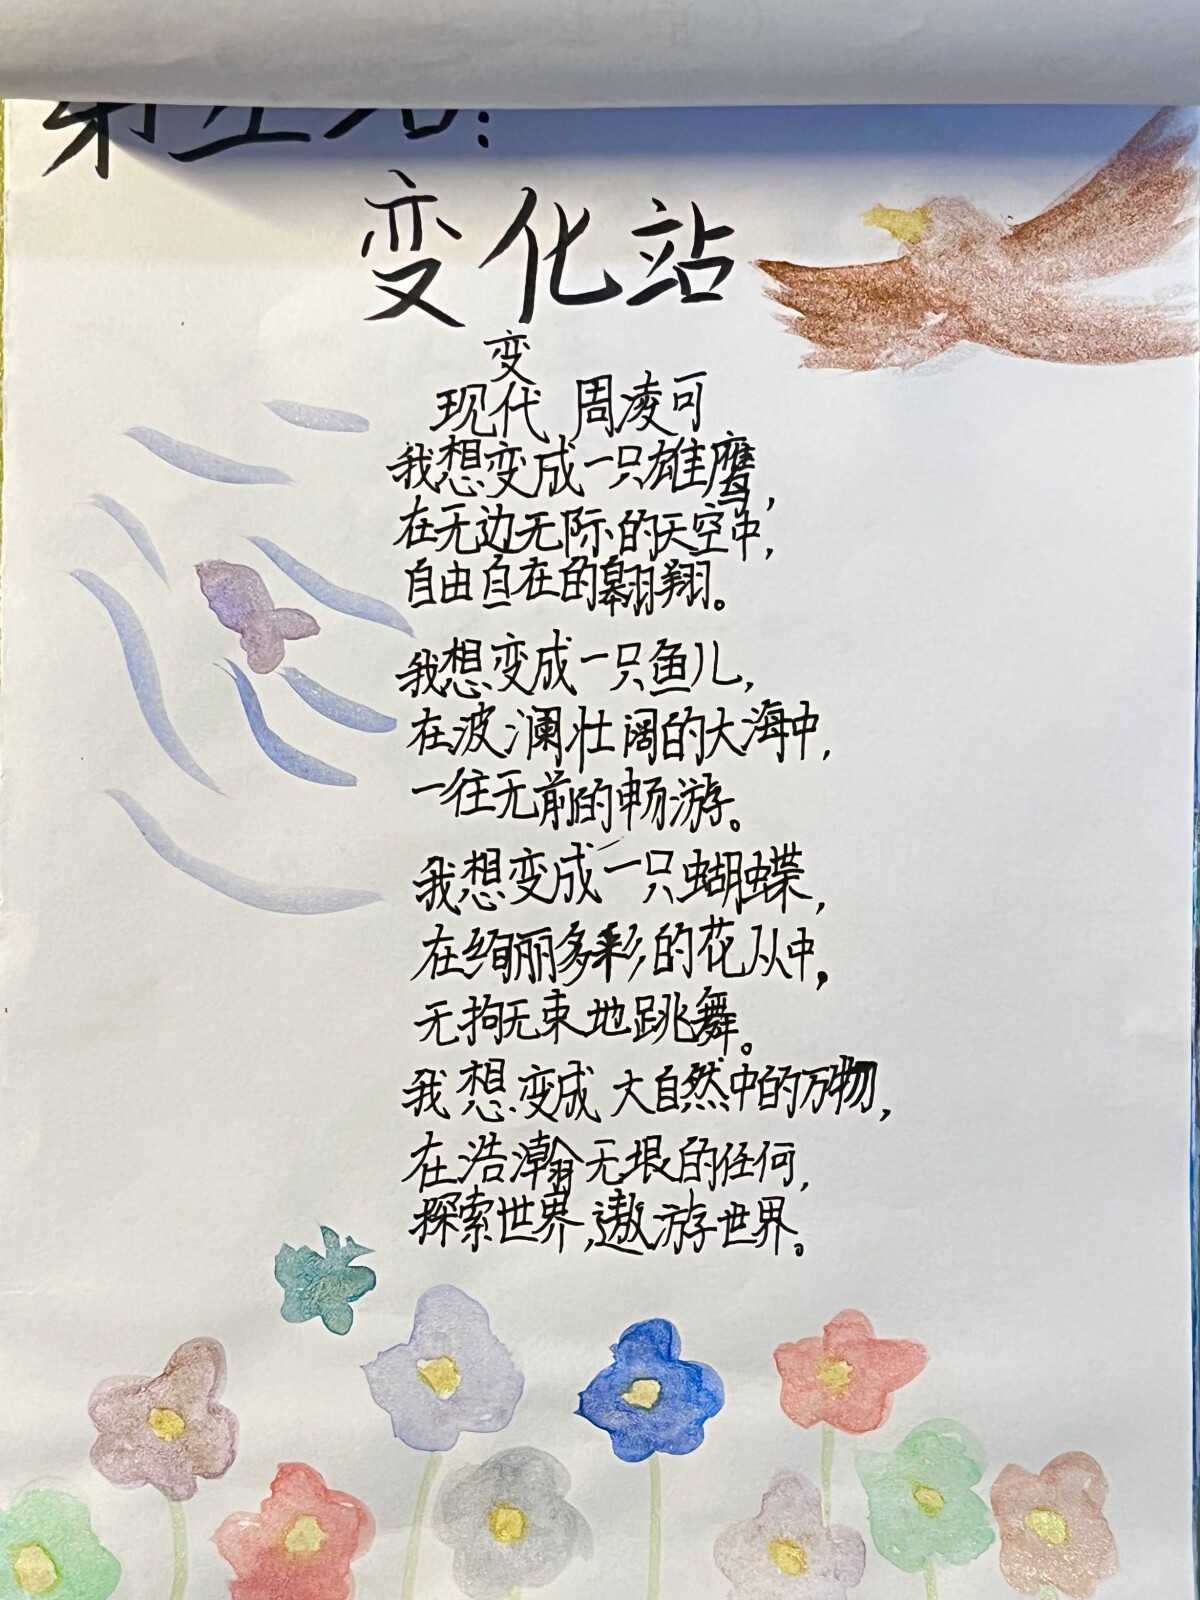 变化站
变
现代 周凌可
我想变成一只雄鹰,
在无边无际的天空中,
自由自在的翱翔。
我想变成一只鱼儿,
在波澜壮阔的大海中,
一往无前的畅游。
我想变成一只蝴蝶,
在绚丽多彩的花从中,
无拘无束地跳舞。
我想变成大自然中的万物,
在浩瀚无垠的任何,
探索世界,遨游世界。